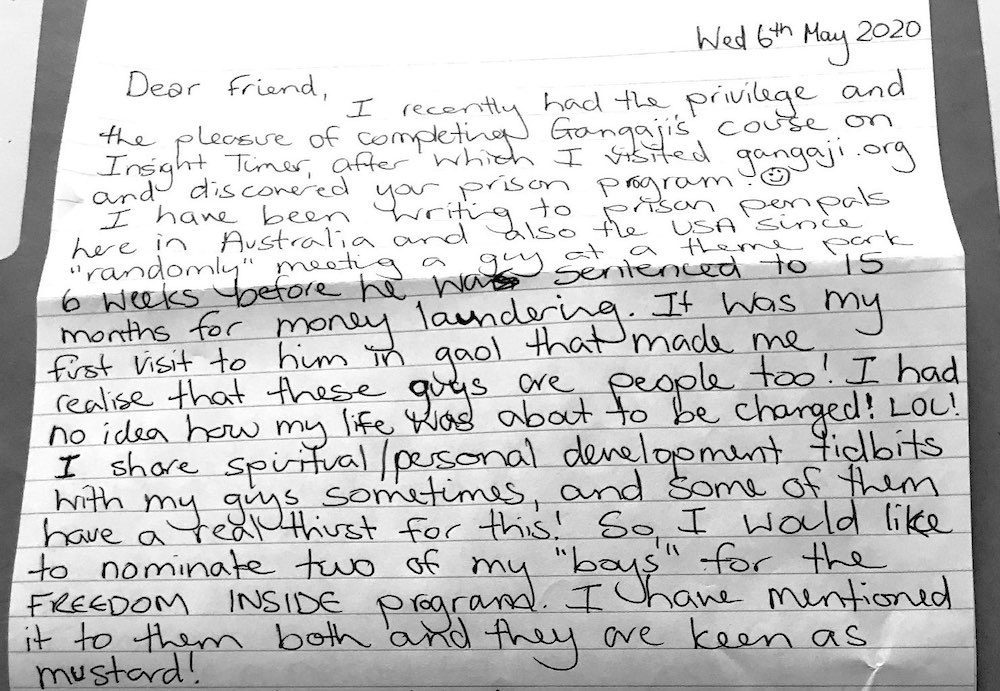 Wed 6th May 2020
Dear Friend,
I recently had the privilege and
the pleasure of completing Gangaji's couse on
Insight Timer, after which I visited gangaji.org
and discovered your prison program. ☺
I have been writing to prison penpals
here in Australia and also the USA since
"randomly" meeting a guy at a theme park
6 weeks before he was sentenced to 15
months for money laundering. It was my
first visit to him in gaol that made me
realise that these guys are people too! I had
no idea how my life was about to be changed! LOL!
I share spiritual/personal development tidbits
with my guys sometimes, and some of them
have a real thirst for this! So, I would like
to nominate two of my "boys" for the
FREEDOM INSIDE program. I have mentioned
it to them both and they are keen as
mustard!